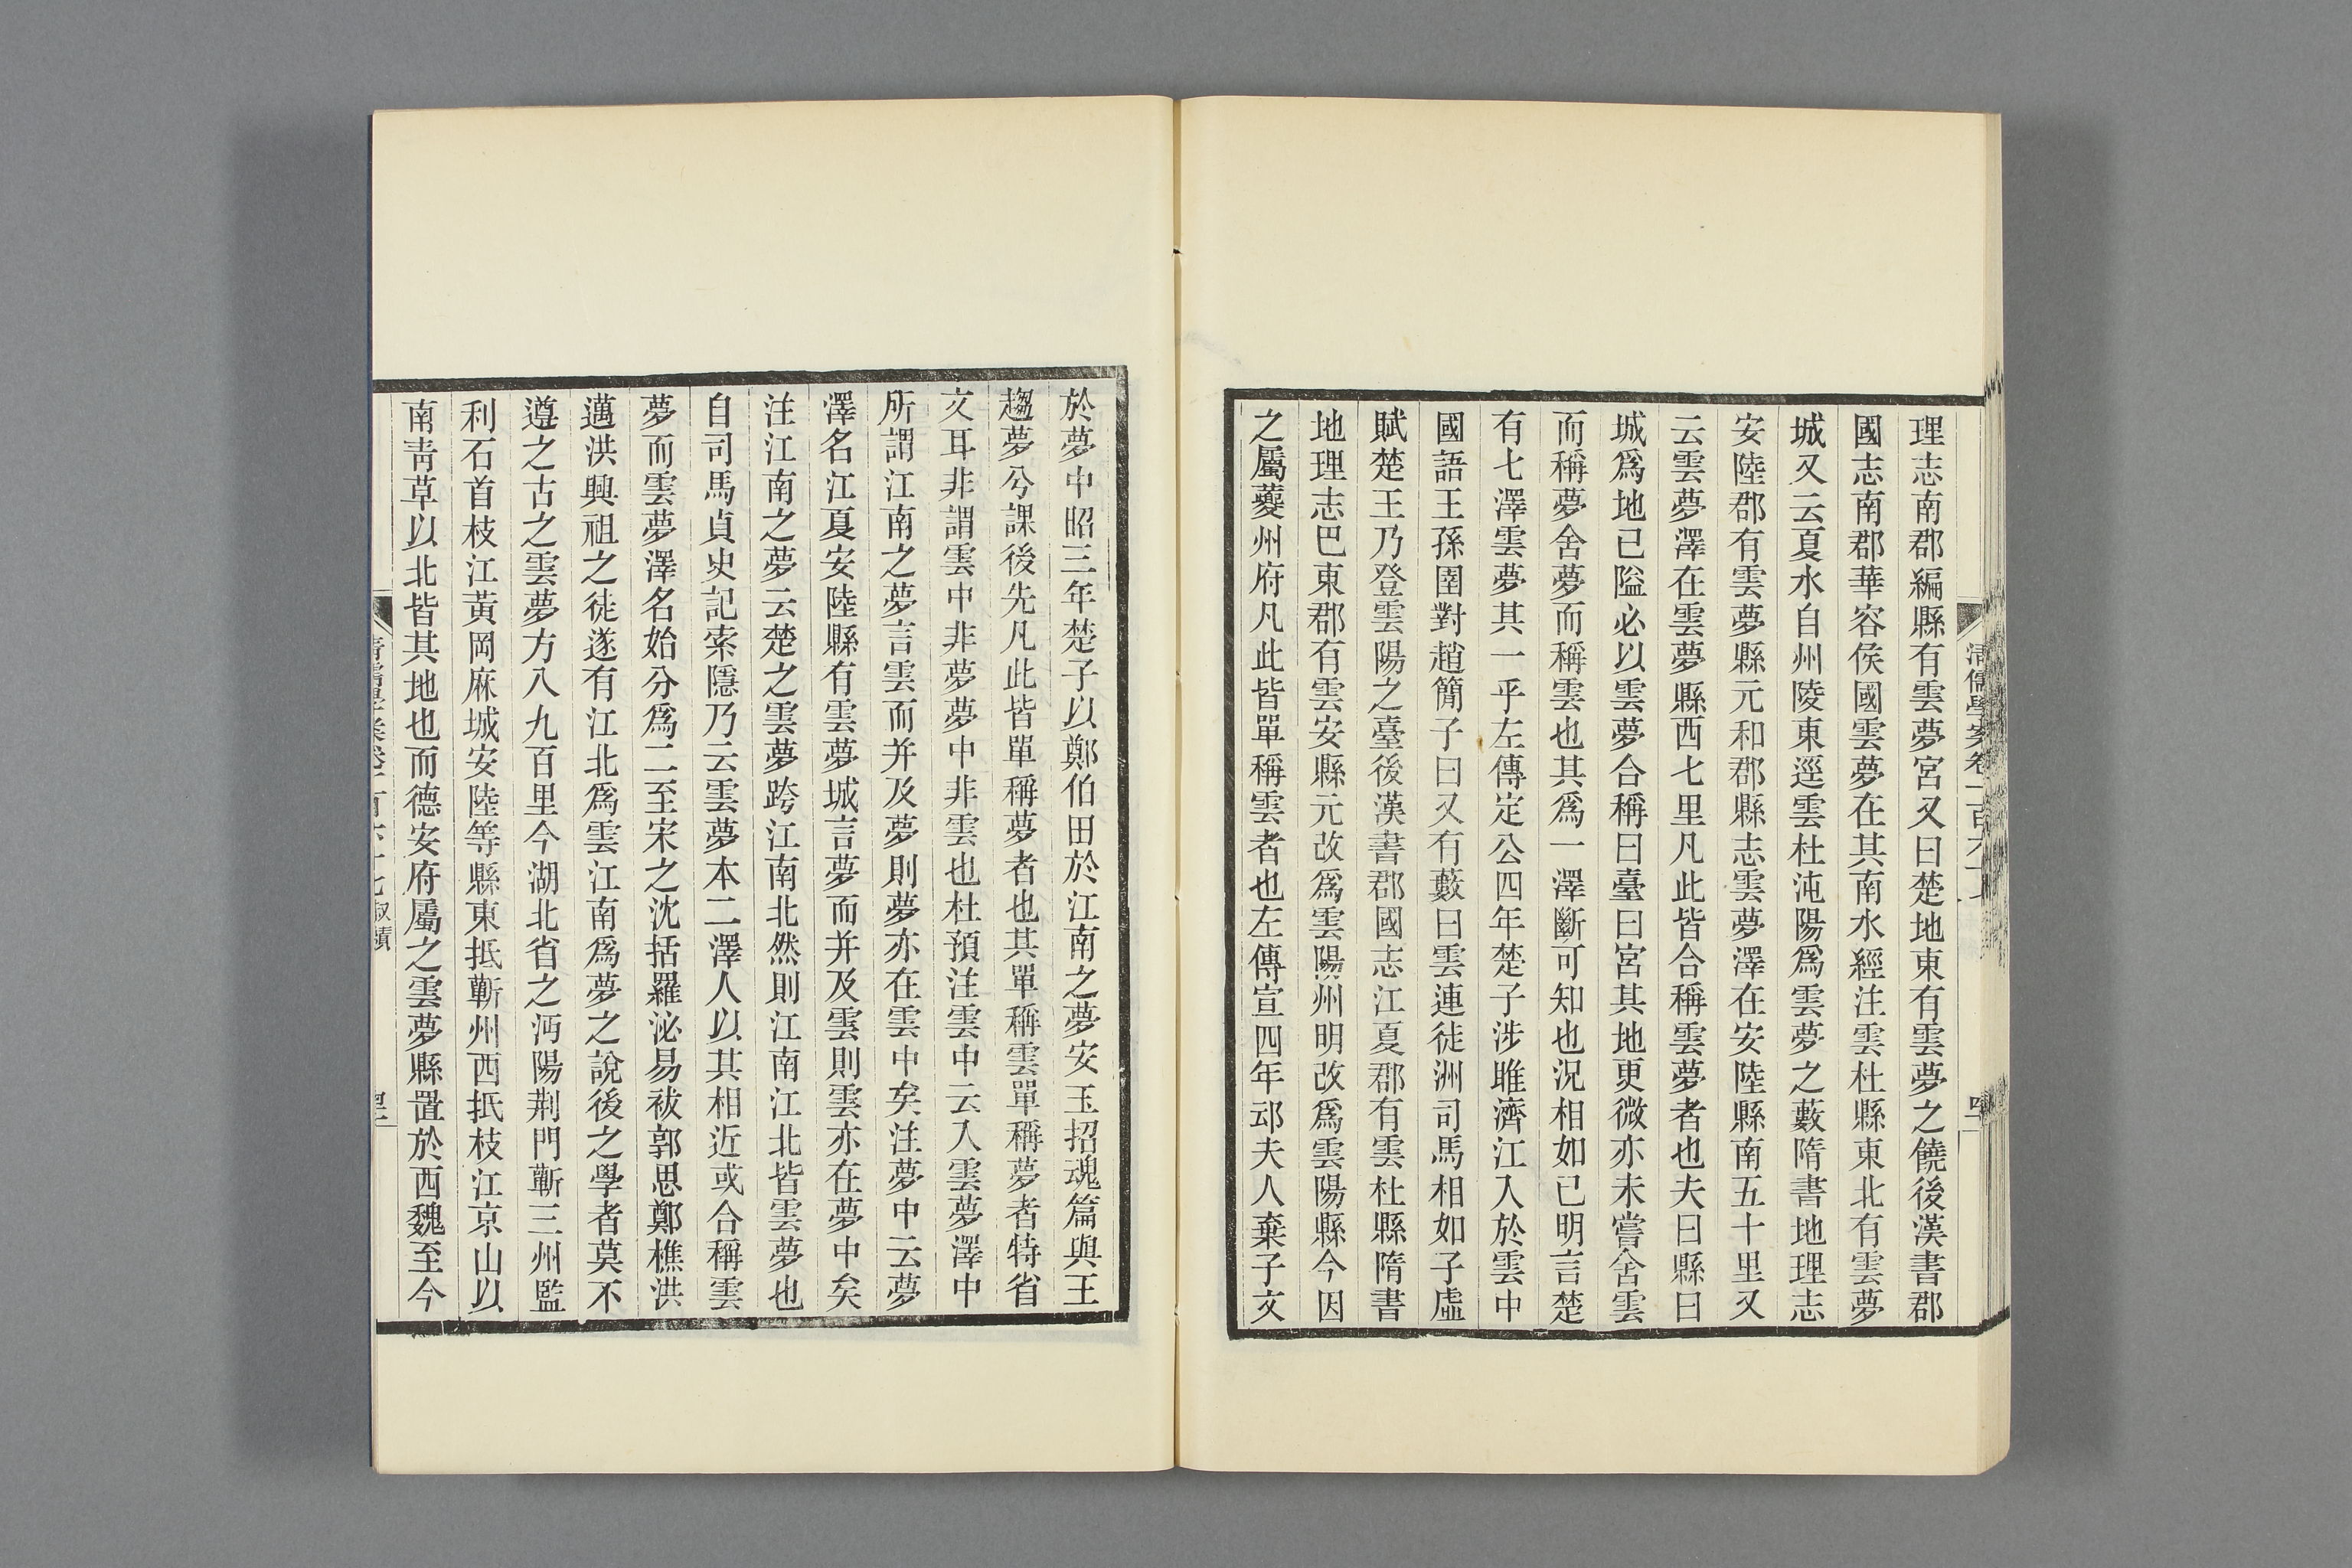 理志南郡編縣有雲夢宮又曰楚地東有雲夢之饒後漢書郡
國志南郡華容侯國雲夢在其南水經注雲杜縣東北有雲夢
城又云夏水自州陵東逕雲杜沌陽爲雲夢之藪隋書地理志
安陸郡有雲夢縣元和郡縣志雲夢澤在安陸縣南五十里又
云雲夢澤在雲夢縣西七里凡此皆合稱雲夢者也夫曰縣曰
城爲地已隘必以雲夢合稱曰臺曰宮其地更微亦未嘗舍雲
而稱夢舍夢而稱雲也其爲一澤斷可知也況相如已明言楚
有七澤雲夢其一乎左傳定公四年楚子涉雎濟江入於雲中
國語王孫圉對趙簡子曰又有藪曰雲連徒洲司馬相如子虛
賦楚王乃登雲陽之臺後漢書郡國志江夏郡有雲杜縣隋書
地理志巴東郡有雲安縣元改爲雲陽州明改爲雲陽縣今因
之屬夔州府凡此皆單稱雲者也左傳宣四年䢵夫人棄子文
於夢中昭三年楚子以鄭伯田於江南之夢安玉招魂篇與王
趨夢兮課後先凡此皆單稱夢者也其單稱雲單稱夢者特省
文耳非謂雲中非夢夢中非雲也杜預注雲中云入雲夢澤中
所謂江南之夢言雲而并及夢則夢亦在雲中矣注夢中云夢
澤名江夏安陸縣有雲夢城言夢而并及雲則雲亦在夢中矣
注江南之夢云楚之雲夢跨江南北然則江南江北皆雲夢也
自司馬貞史記索隱乃云雲夢本二澤人以其相近或合稱雲
夢而雲夢澤名始分爲二至宋之沈括羅泌易祓郭思鄭樵洪
邁洪興祖之徒遂有江北爲雲江南爲夢之說後之學者莫不
遵之古之雲夢方八九百里今湖北省之沔陽荆門蘄三州監
利石首枝江黃岡麻城安陸等縣東抵蘄州西抵枝江京山以
南靑草以北皆其地也而德安府屬之雲夢縣置於西魏至今